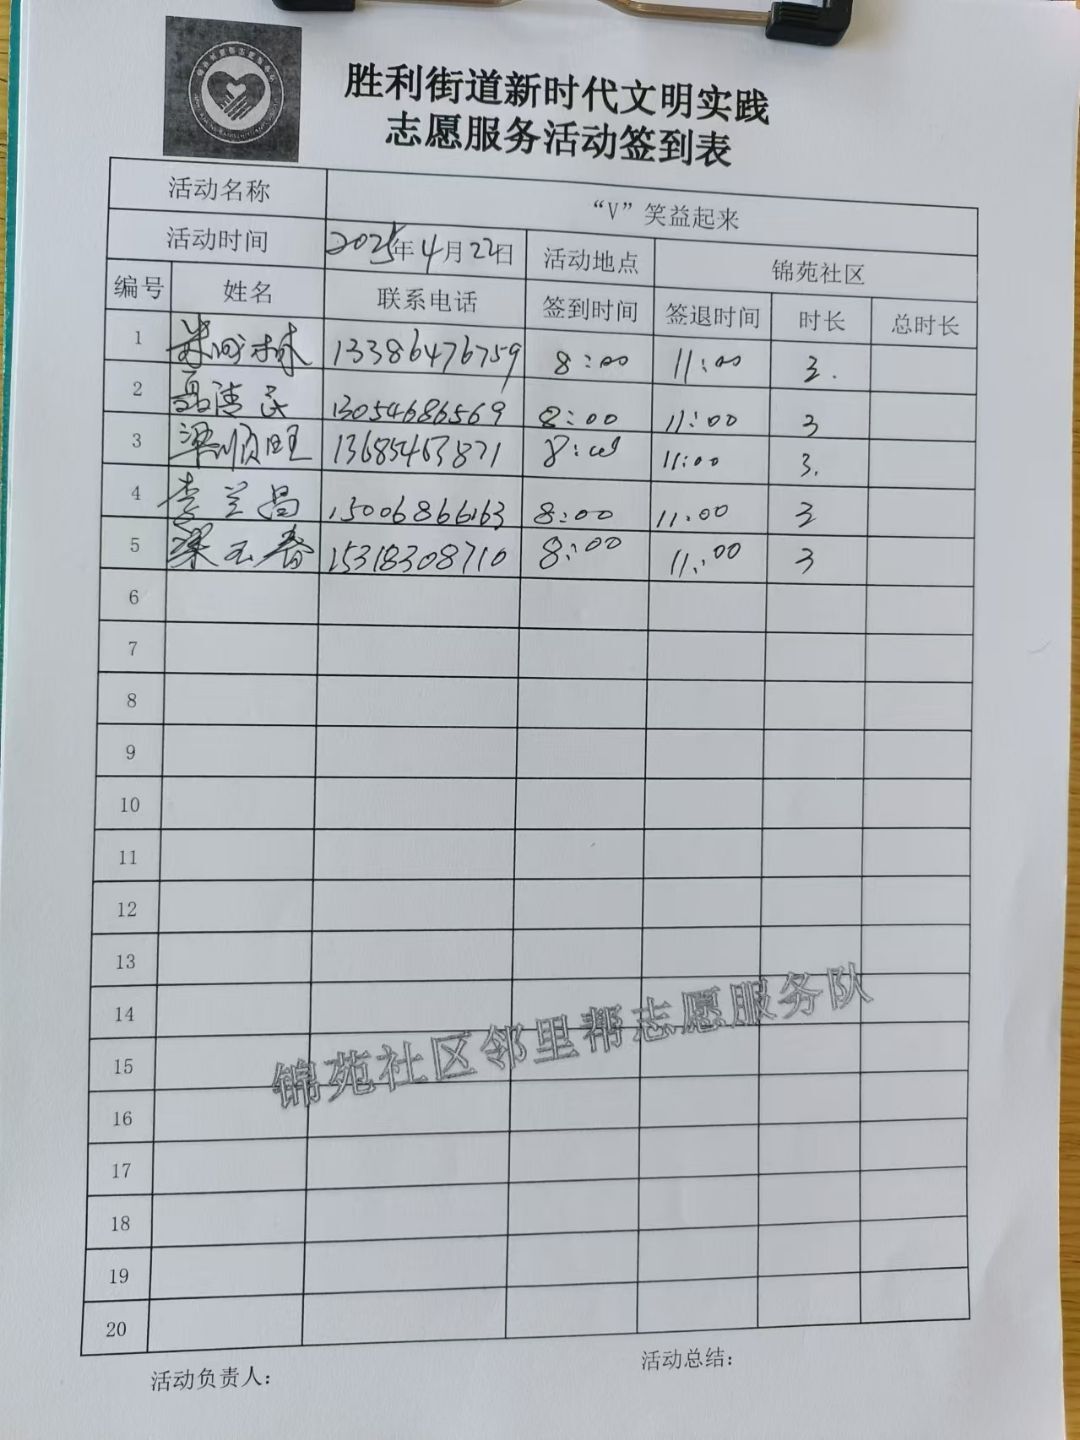 胜利街道新时代文明实践
志愿服务活动签到表
活动名称 “V”笑益起来
活动时间 2025年4月22日 活动地点 锦苑社区
编号 姓名 联系电话 签到时间 签退时间 时长 总时长
1 13386476759 8:00 11:00 3.
2 聂清民 13054686569 8:00 11:00 3
3 梁顺旺 13685463871 8:00 11:00 3.
4 李兰昌 15006866163 8:00 11:00 3
5 梁玉春 15318308710 8:00 11:00 3
6
7
8
9
10
11
12
13
14
15
16
17
18
19
20
锦苑社区邻里帮志愿服务队
活动负责人: 活动总结: